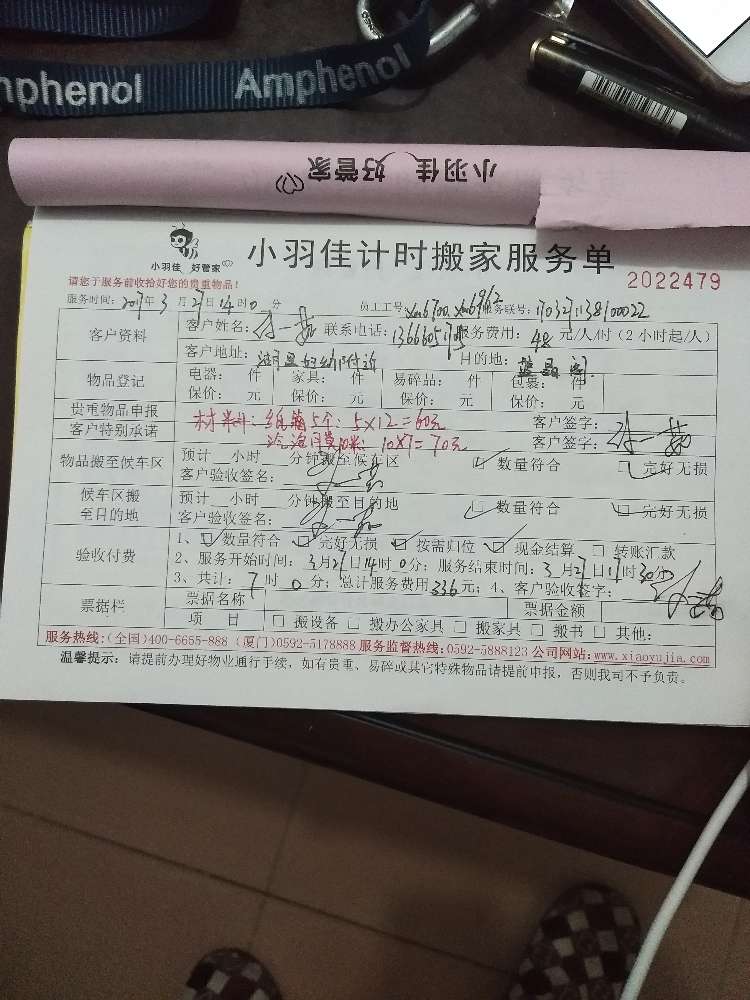 Amphenol Amphenol
小羽佳 好管家
小羽佳 好管家
小羽佳计时搬家服务单
请您于服务前收拾好您的贵重物品!
2022479
服务时间: 2017年3月27日14时0分 员工工号: xm6700.xm6962 服务联号: 1703271138100022
客户资料
客户姓名: 联系电话: 服务费用: 48 元/人/时 (2小时起/人)
客户地址: 目的地: 蓝晶阁
物品登记
电器: 件 家具: 件 易碎品: 件 包裹: 件
保价: 元 保价: 元 保价: 元 保价: 元
贵重物品申报
材料: 纸箱5个: 5×12=60元
客户签字:
客户特别承诺
10×7=70元
客户签字:
物品搬至候车区
预计 小时 分钟搬至候车区 □ 数量符合 □ 完好无损
客户验收签名:
候车区搬至目的地
预计 小时 分钟搬至目的地 □ 数量符合 □ 完好无损
客户验收签名:
验收付费
1、□ 数量符合 □ 完好无损 □ 按需归位 □ 现金结算 □ 转账汇款
2、服务开始时间: 3月27日14时0分; 服务结束时间: 3月27日17时30分
3、共计: 7时0分; 总计服务费用336元; 4、客户验收签字:
票据栏
票据名称 票据金额
项 目 □ 搬设备 □ 搬办公家具 □ 搬家具 □ 搬书 □ 其他:
服务热线:(全国)400-6655-888 (厦门)0592-5178888 服务监督热线:0592-5888123 公司网站:www.xiaoyujia.com
温馨提示: 请提前办理好物业通行手续, 如有贵重、易碎或其它特殊物品请提前申报, 否则我司不予负责。